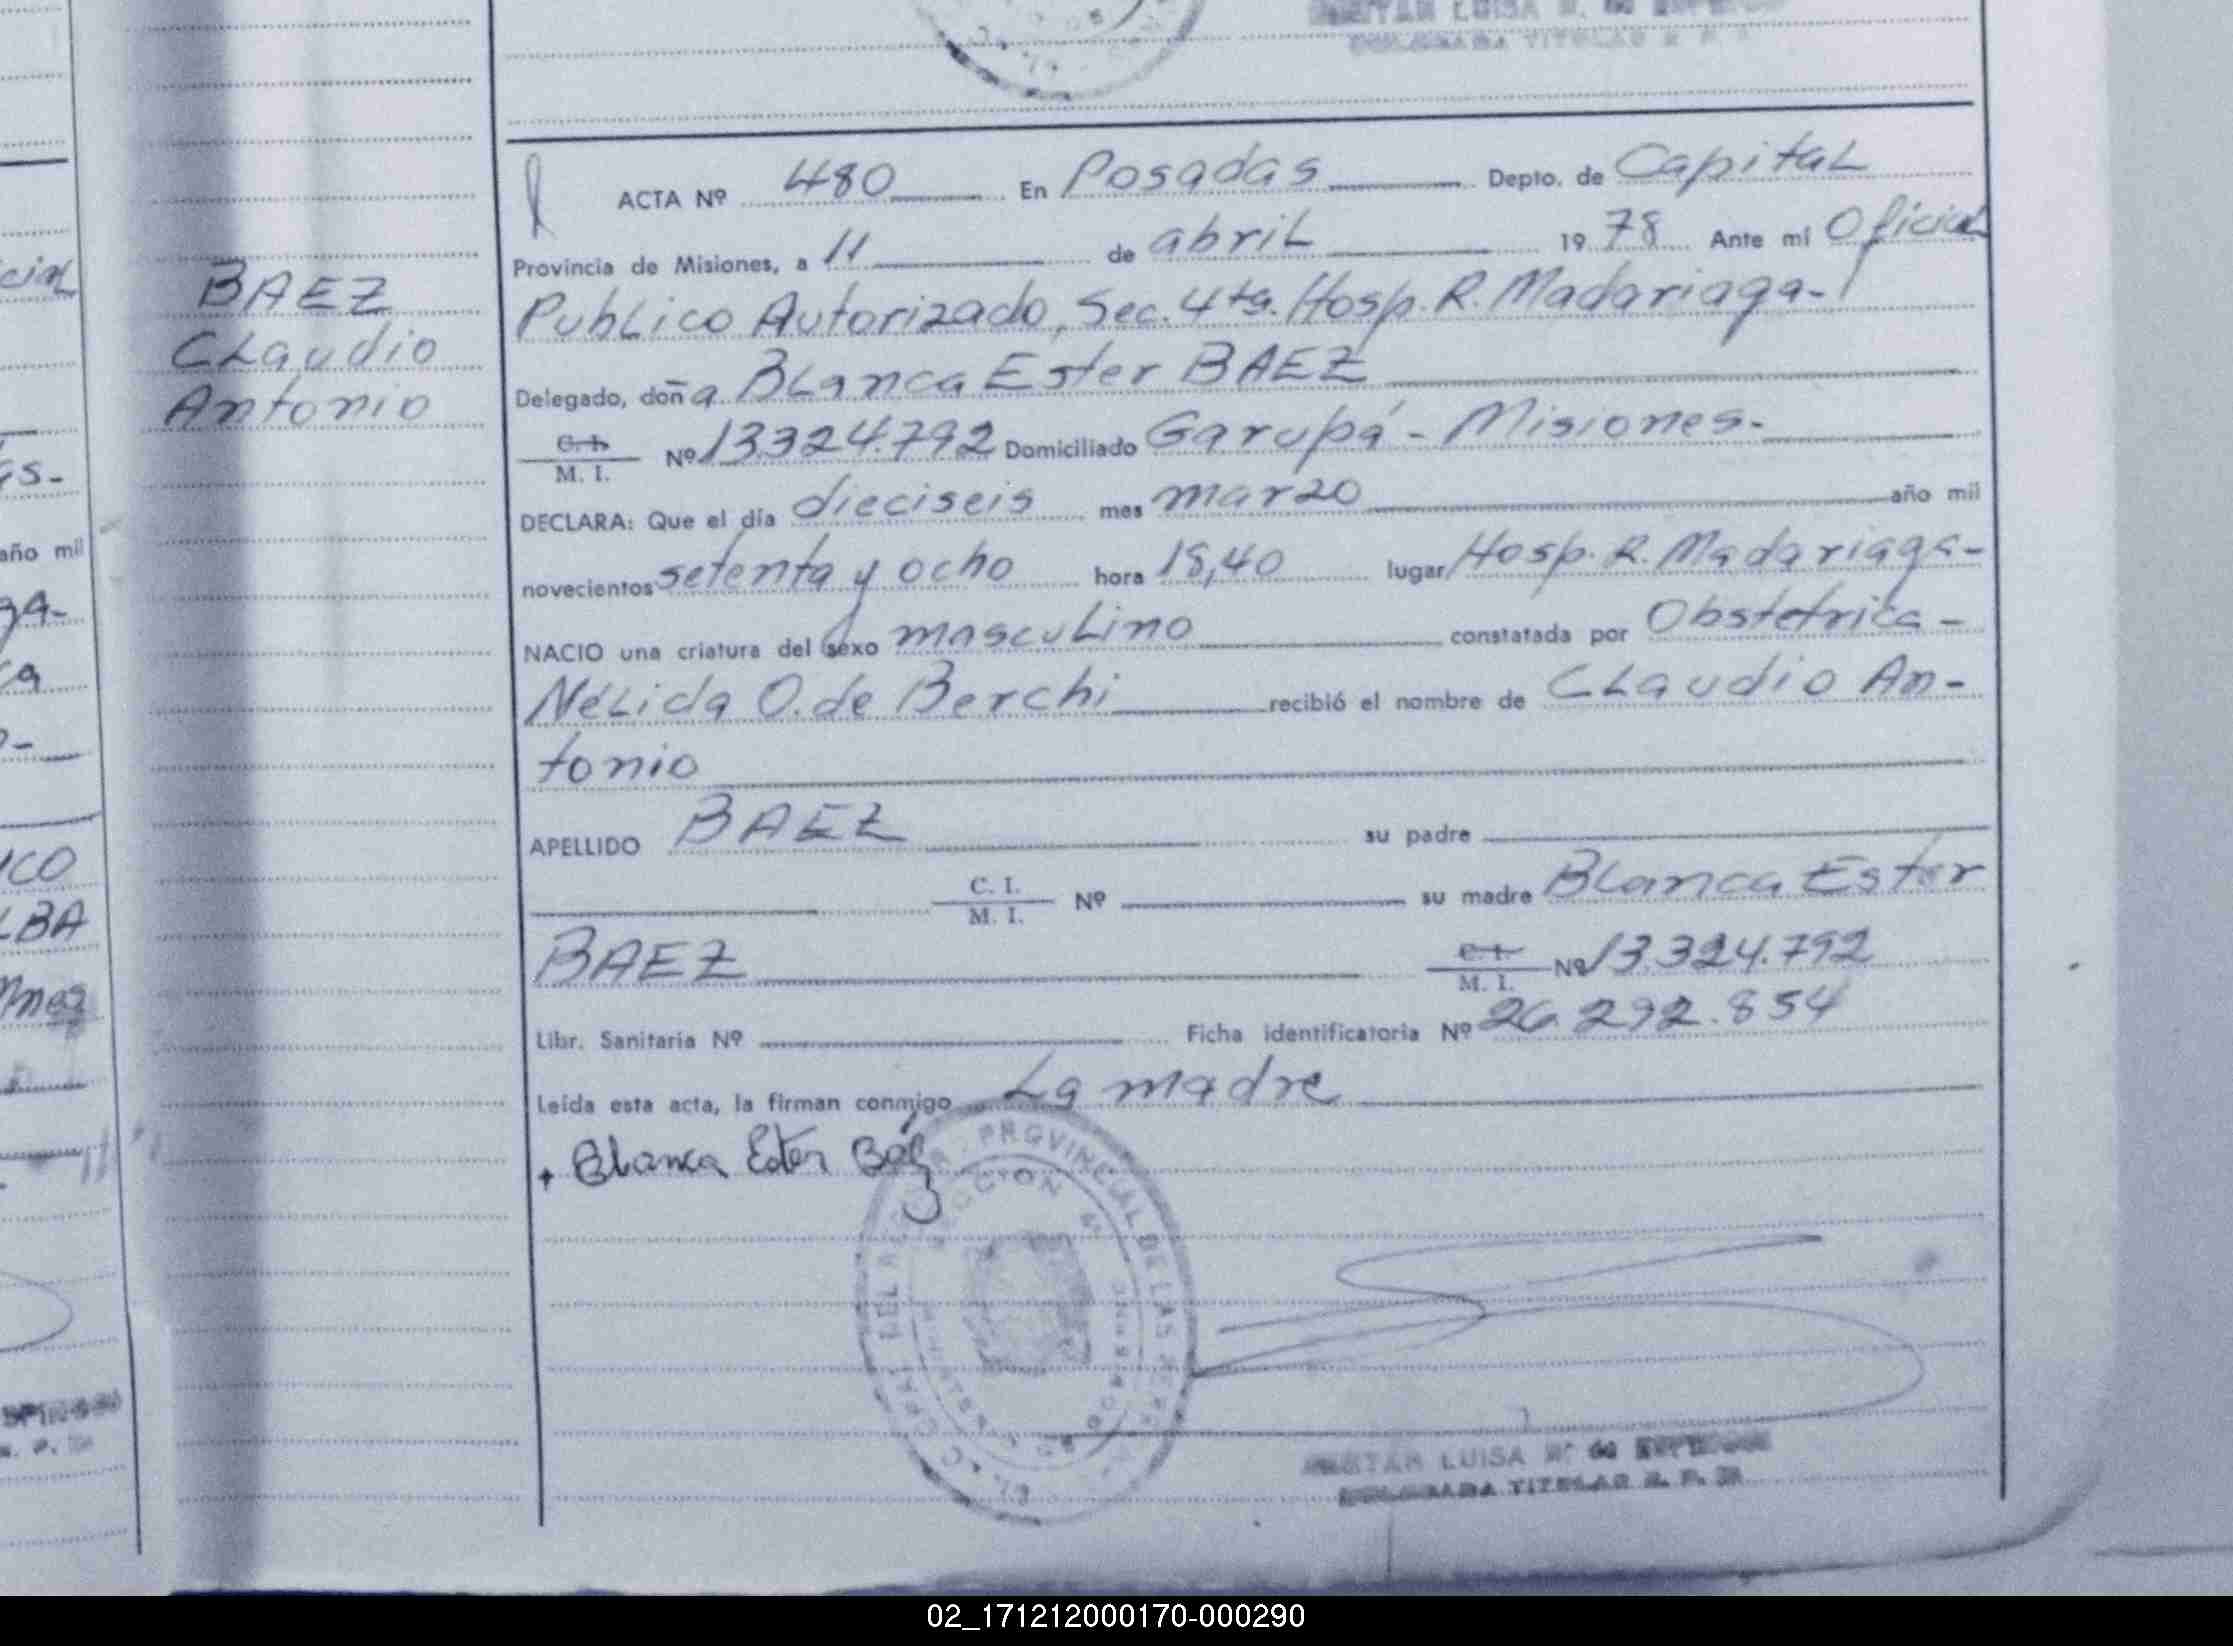 BAEZ
CLaudio
Antonio
ACTA Nº 480 En Posadas Depto. de CapitaL
Provincia de Misiones, a 11 de abriL 1978 Ante mí OficiaL
PubLico Autorizado, Sec. 4ta. Hosp. R. Madariaga-
Delegado, doña BLanca Ester BAEZ
C. I.
M. I. Nº 13.324.792 Domiciliado Garupá - Misiones-
DECLARA: Que el día dieciseis mes marzo año mil
novecientos setenta y ocho hora 18,40 lugar Hosp. R. Madariaga-
NACIO una criatura del sexo mascuLino constatada por Obstetrica-
NéLida O. de Berchi recibió el nombre de CLaudio An-
tonio
APELLIDO BAEZ su padre
C. I.
M. I. Nº su madre BLanca Ester
BAEZ C. I.
M. I. Nº 13.324.792
Libr. Sanitaria Nº Ficha identificatoria Nº 26.292.854
Leída esta acta, la firman conmigo La madre
Blanca Ester Báez
PROVINCIAL DE LAS
SECCION
LUISA
02_171212000170-000290